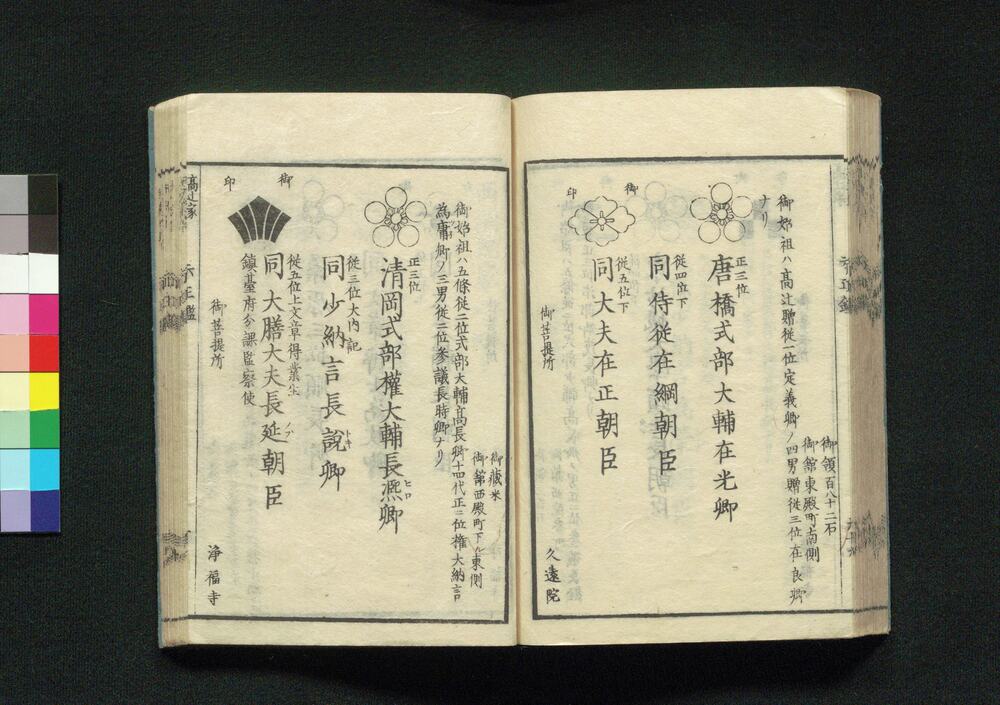 御領百八十二石
御舘東殿町南側
御始祖ハ高辻贈従一位定義卿ノ四男贈従三位在良卿
ナリ
正三位
唐橋式部大輔在光卿
従四位下
同侍従在綱朝臣
御印
従五位下
同大夫在正朝臣
御菩提所
久遠院
御蔵米
御舘西殿町下ル東側
御始祖ハ五條従二位式部大輔高長卿十四代正二位権大納言
為庸卿ノ三男従二位参議長時卿ナリ
正三位
清岡式部權大輔長凞卿
ヒロ
従三位大内記
同少納言長說卿
トキ
御印
従五位上文章得業生
同大膳大夫長延朝臣
ノブ
鎮臺府分課監察使
御菩提所
浄福寺
高辻家